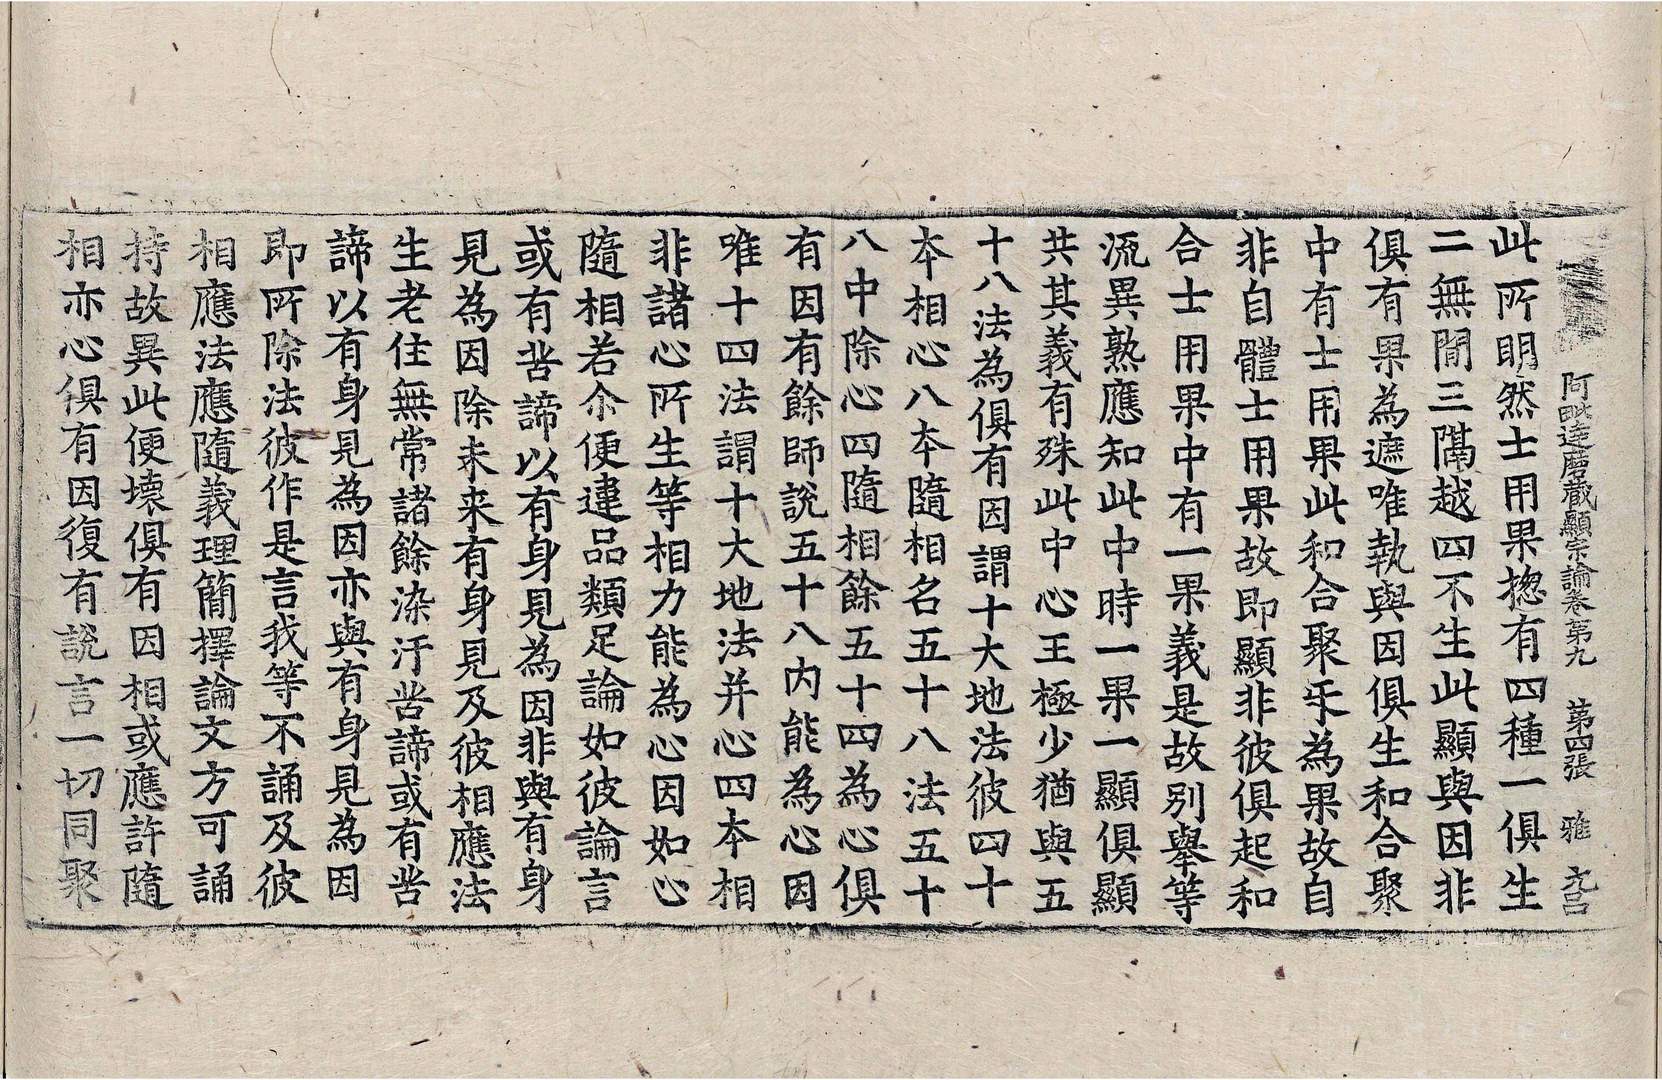 阿毗達磨藏顯宗論卷第九　第四張　雅
此所明然士用果揔有四種一俱生
二無間三隔越四不生此顯與因非
俱有果為遮唯執與因俱生和合聚
中有士用果此和合聚乎為果故自
非自體士用果故即顯非彼俱起和
合士用果中有一果義是故別舉等
流異熟應知此中時一果一顯俱顯
共其義有殊此中心王極少猶與五
十八法為俱有因謂十大地法彼四十
本相心八本隨相名五十八法五十
八中除心四隨相餘五十四為心俱
有因有餘師說五十八內能為心因
唯十四法謂十大地法并心四本相
非諸心所生等相力能為心因如心
隨相若尒便違品類足論如彼論言
或有苦諦以有身見為因非與有身
見為因除未来有身見及彼相應法
生老住無常諸餘染汙苦諦或有苦
諦以有身見為因亦與有身見為因
即所除法彼作是言我等不誦及彼
相應法應隨義理簡擇論文方可誦
持故異此便壞俱有因相或應許隨
相亦心俱有因復有說言一切同聚